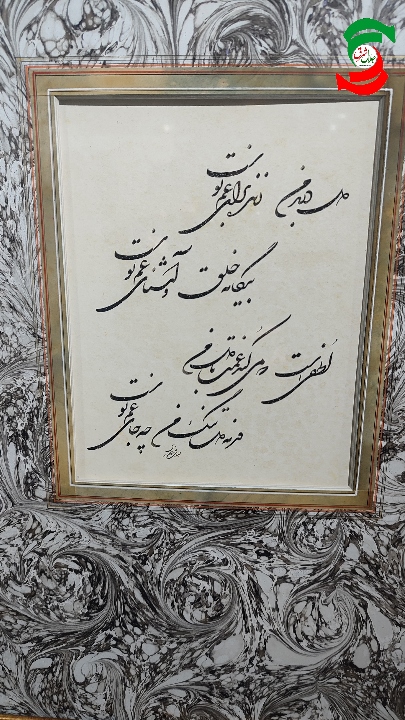 دل در بر من زنده برای غم توست
بیگانه خلق و آشنای غم توست
لُطفی است که می کُند غمت با دل من
ورنه دل تنگ من چه جای غم توست